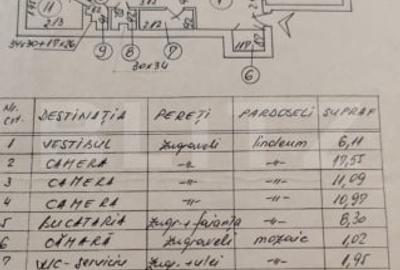 11
213
34x30+17x26
9
8
7
6
30x34
212
Nr. crt. DESTINAȚIA PEREȚI PARDOSELI SUPRAF
1 VESTIBUL zugraveli linoleum 6,11
2 CAMERA -"- -"- 17,55
3 CAMERA -"- -"- 11,09
4 CAMERA -"- -"- 10,97
5 BUCATARIA zugr.+faianța -"- 8,30
6 CĂMARA zugraveli mozaic 1,02
7 W.C-serviciu zugr.+ulei -"- 1,95